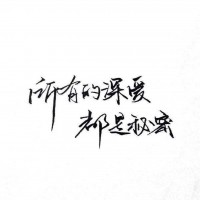 所有的深爱
都是秘密